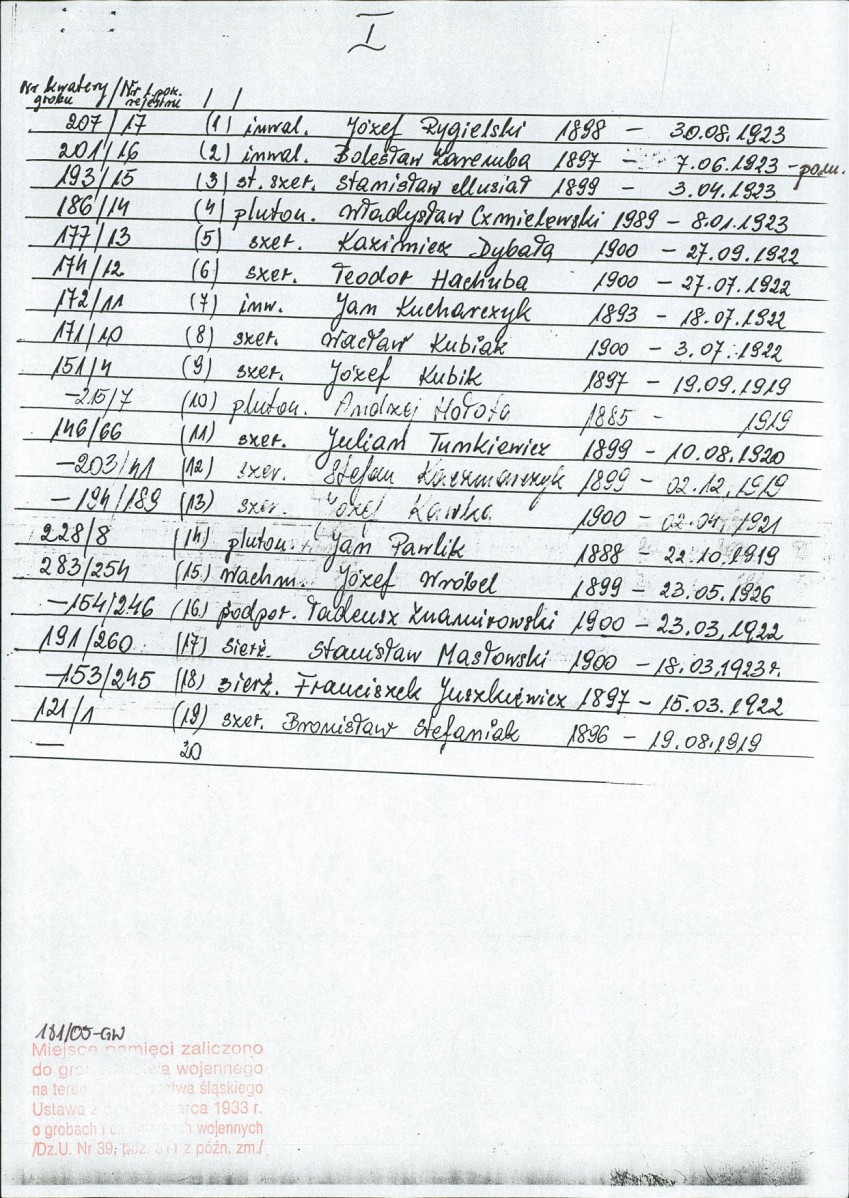 I
Nr kwatery / Nr l. pok.
grobu rejestru / /
207/17 (1) inwal. Józef Rygielski 1898 - 30.08.1923
201/16 (2) inwal. Bolesław Zaremba 1897 - 7.06.1923 -
193/15 (3) st. szer. Stanisław Musiał 1899 - 3.04.1923
186/14 (4) pluton. Władysław Czmielewski 1989 - 8.01.1923
177/13 (5) szer. Kazimierz Dybała 1900 - 27.09.1922
174/12 (6) szer. Teodor Hachuba 1900 - 27.07.1922
172/11 (7) inw. Jan Kucharczyk 1893 - 18.07.1922
171/10 (8) szer. Wacław Kubiak 1900 - 3.07.1922
151/4 (9) szer. Józef Kubik 1897 - 19.09.1919
-215/7 (10) pluton. Andrzej Hołota 1885 - 1919
146/66 (11) szer. Julian Tumkiewicz 1899 - 10.08.1920
-203/41 (12) szer. Stefan Kaczmarczyk 1899 - 02.12.1919
-194/189 (13) szer. Józef Kawka 1900 - 02.04.1921
228/8 (14) pluton. Jan Pawlik 1888 - 22.10.1919
283/254 (15) wachm. Józef Wróbel 1899 - 23.05.1926
-154/246 (16) podpor. Tadeusz Znamirowski 1900 - 23.03.1922
191/260 (17) sierż. Stanisław Masłowski 1900 - 18.03.1923r.
-153/245 (18) sierż. Franciszek Juszkiewicz 1897 - 15.03.1922
121/1 (19) szer. Bronisław Stefaniak 1896 - 19.08.1919
— 20
181/05-GW
Miejsce pamięci zaliczono
do wojennego
na śląskiego
Ustawa z marca 1933 r.
o grobach i wojennych
/Dz.U. Nr 39, poz. 311 z późn. zm./